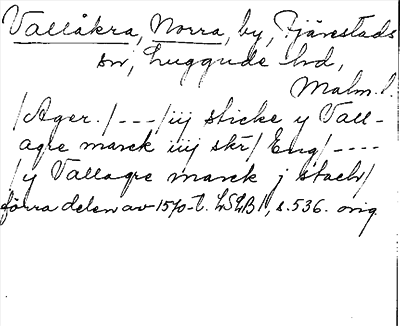 Vallåkra, Norra, by, Fjärestads
sn, Luggude hd,
Malm. l.
/Ager./---/iij sticke y Vall-
agre marck iiij skr/Eng/----
/y Vallagre marck j stach/
förra delen av 1570-t. LSLB 1, s. 536. orig.